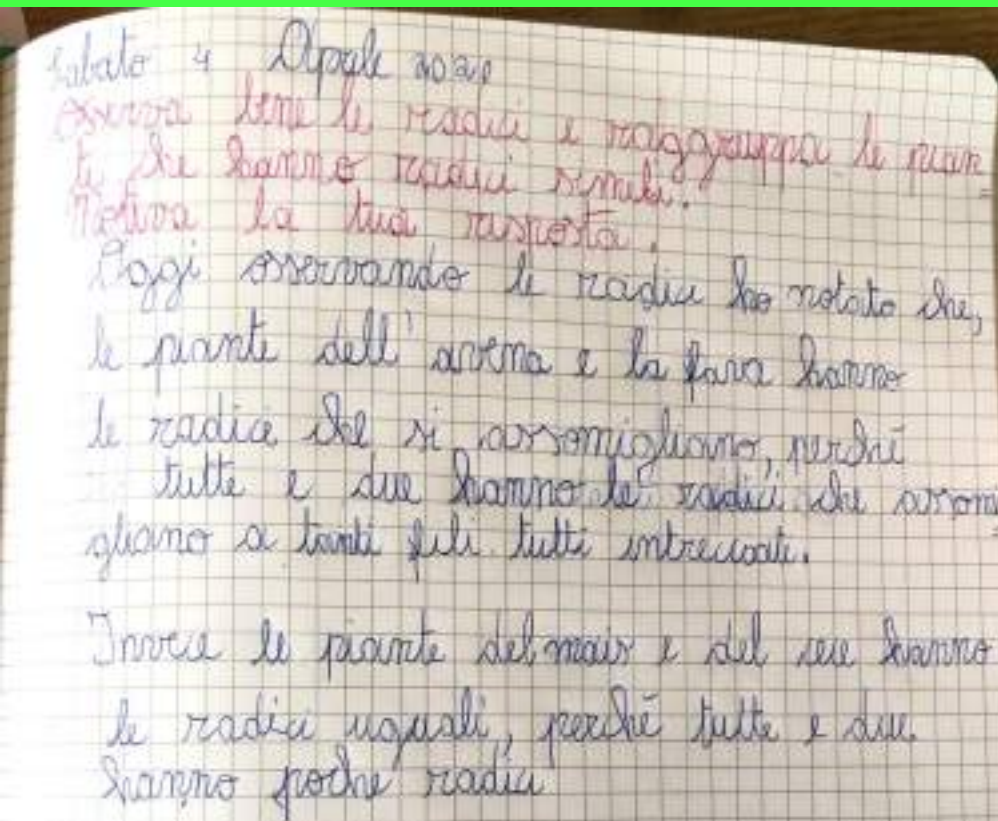 Sabato 4 Aprile 2020
Osserva bene le radici e raggruppa le pian
te che hanno radici simili.
Motiva la tua risposta.
Oggi osservando le radici ho notato che,
le piante dell'avena e la fava hanno
le radici che si assomigliano, perché
tutte e due hanno le radici che assomi
gliano a tanti fili tutti intrecciati.
Invece le piante del mais e del cece hanno
le radici uguali, perché tutte e due
hanno poche radici